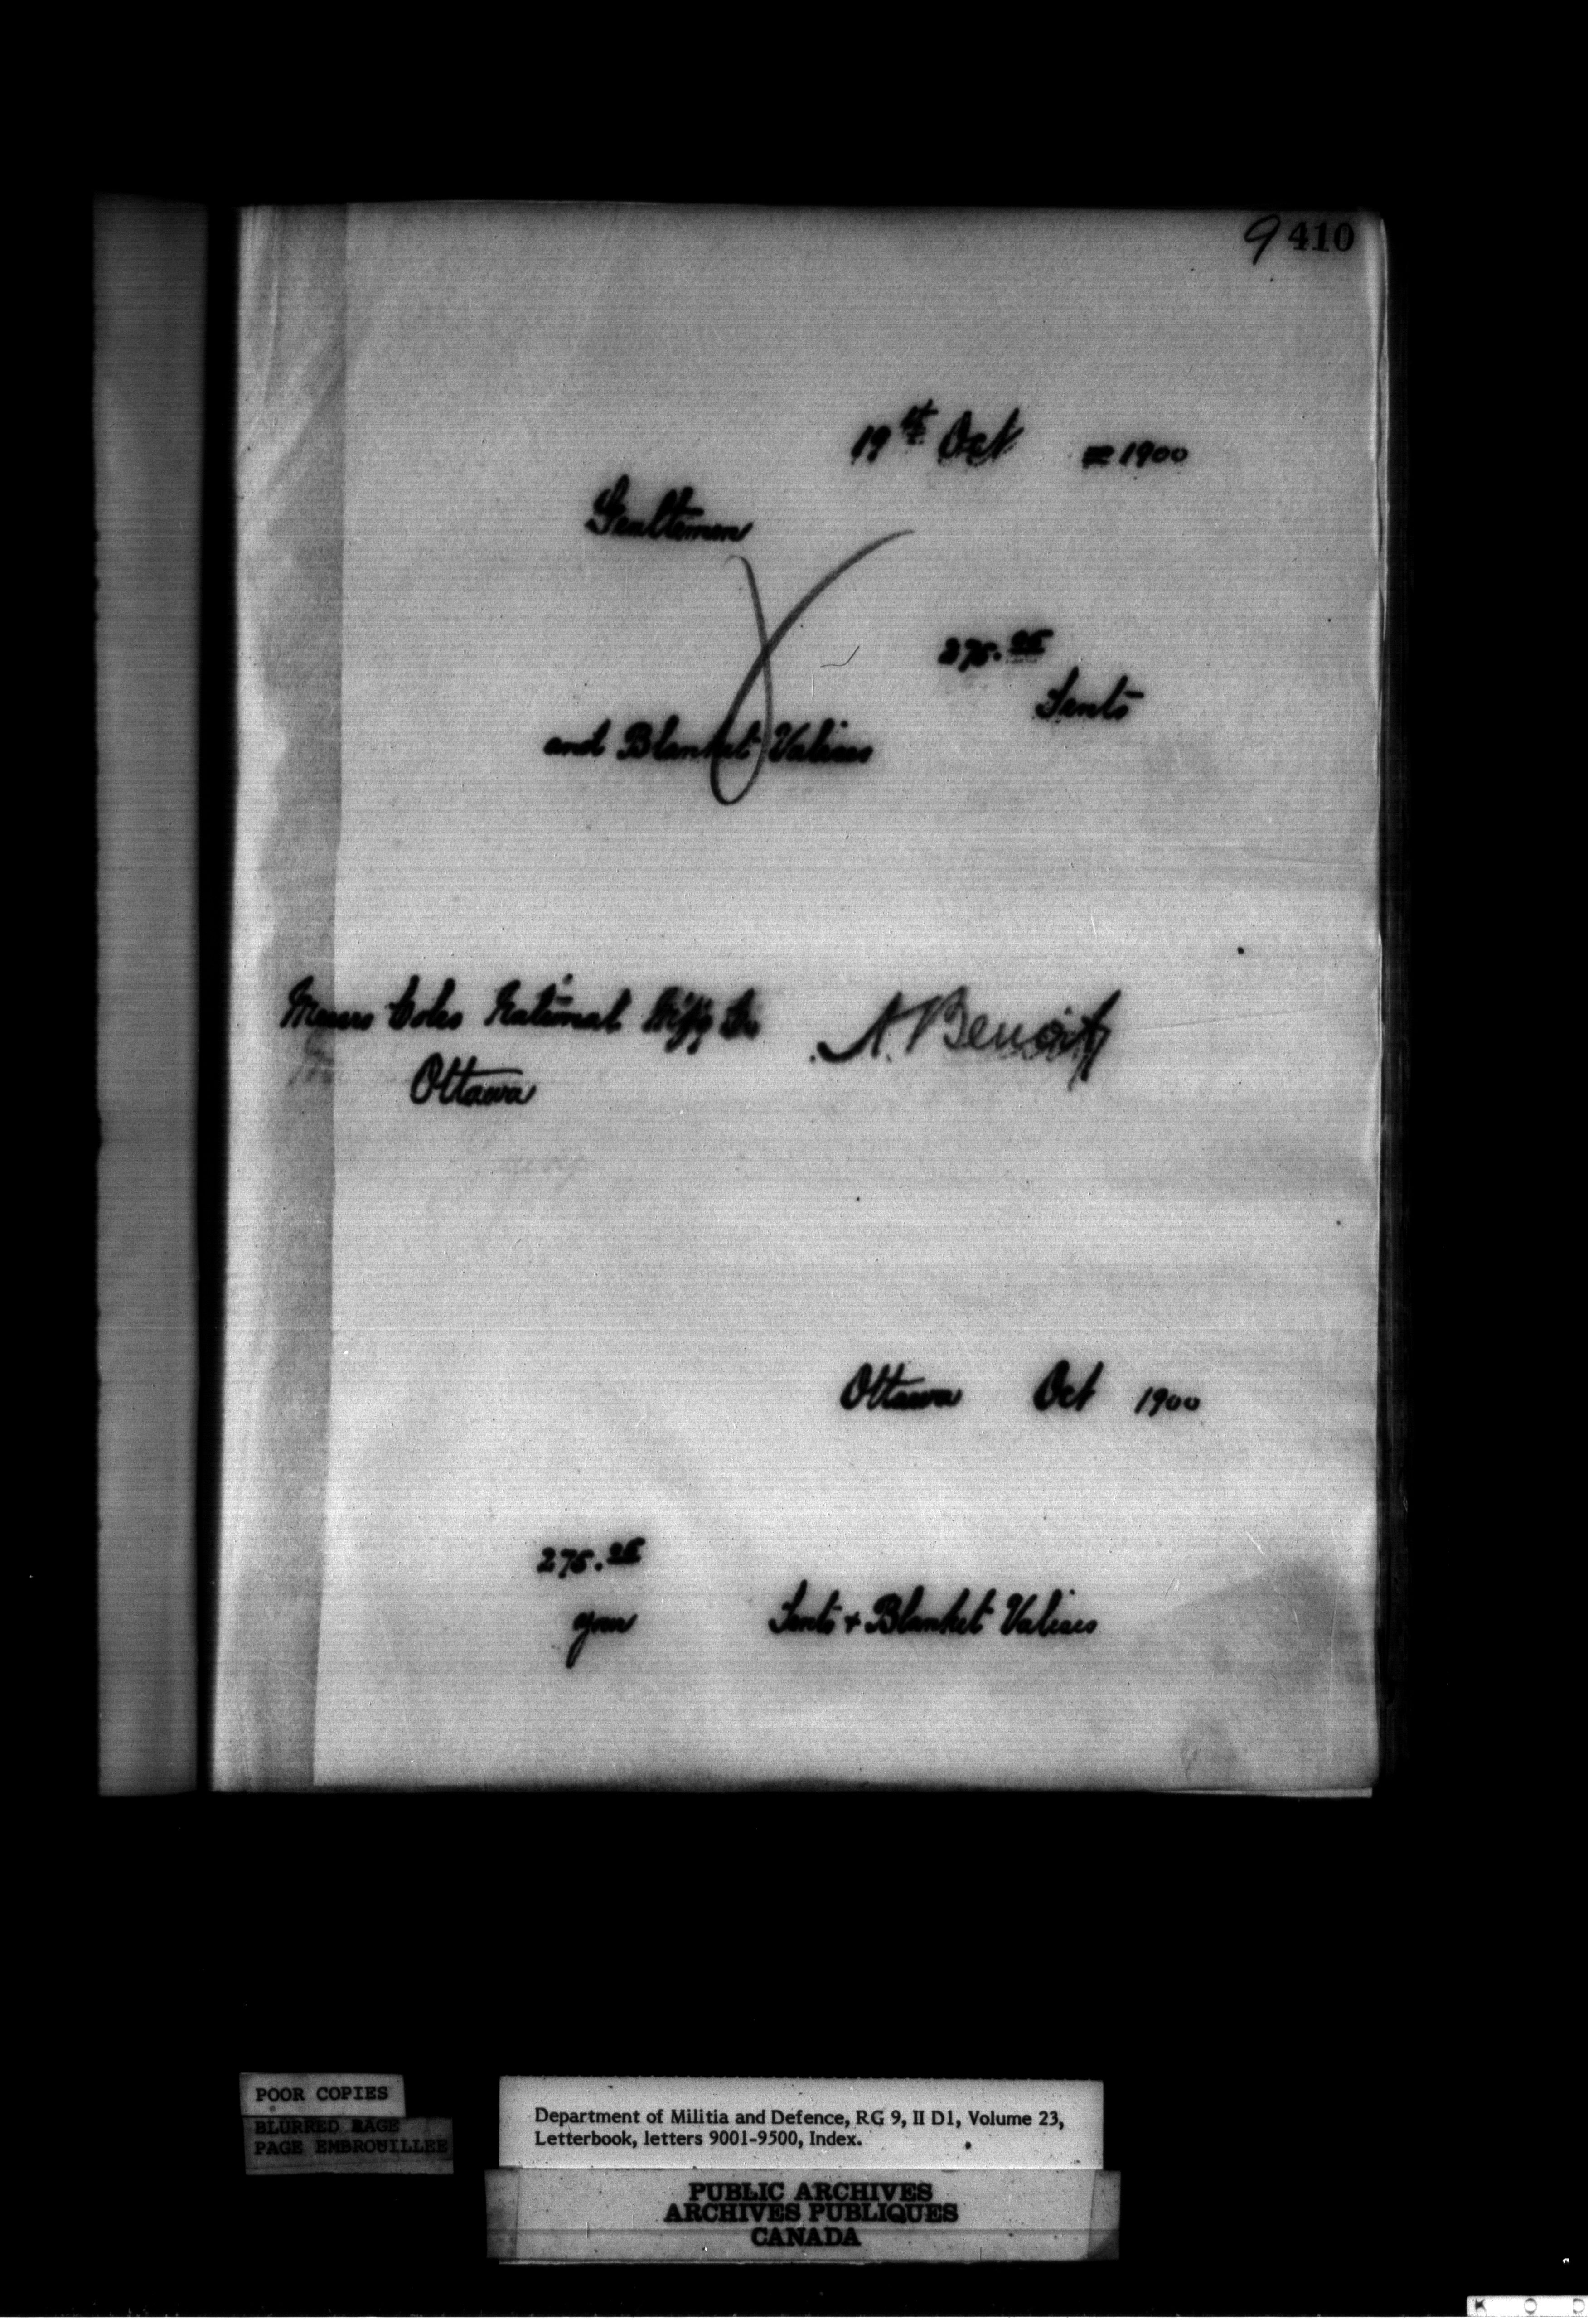 9410
19th Oct 1900
Gentlemen
275.25
Tents
and Blanket Valises
Messrs Coles National M'f'g Co
A. Benoit
Ottawa
Ottawa Oct 1900
275.25
your Tents + Blanket Valises
POOR COPIES
BLURRED PAGE
PAGE EMBROUILLEE
Department of Militia and Defence, RG 9, II D1, Volume 23,
Letterbook, letters 9001-9500, Index.
PUBLIC ARCHIVES
ARCHIVES PUBLIQUES
CANADA
K O D